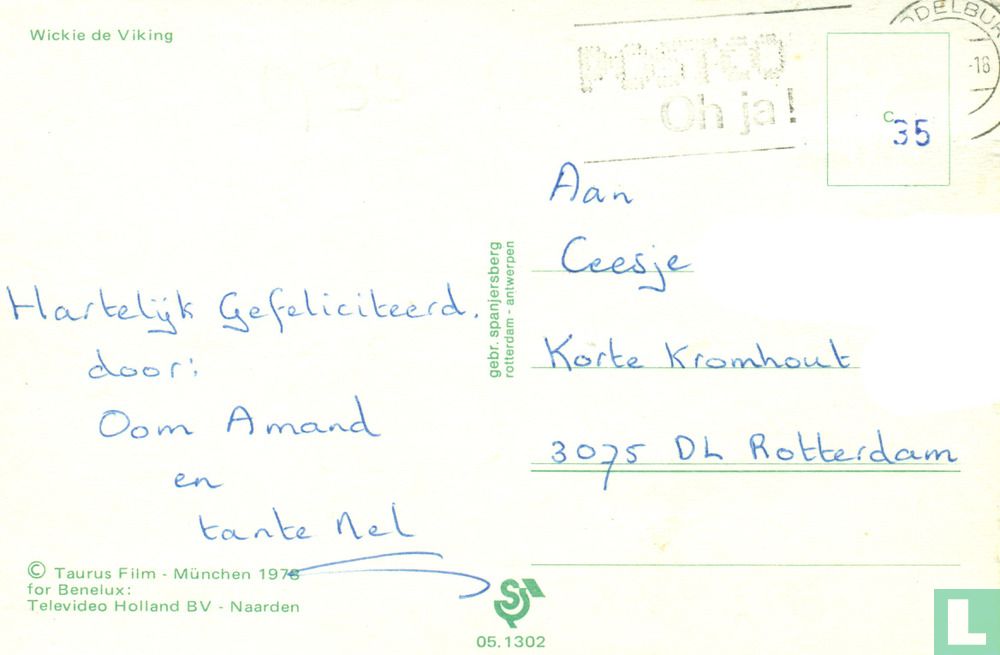 Wickie de Viking
POSTCO
Oh ja!
DELBU
-18
c
35
Hartelijk Gefeliciteerd.
door:
Oom Amand
en
tante Nel
gebr. spanjersberg
rotterdam - antwerpen
Aan
Ceesje
Korte Kromhout
3075 DL Rotterdam
© Taurus Film - München 1978
for Benelux:
Televideo Holland BV - Naarden
05.1302
L